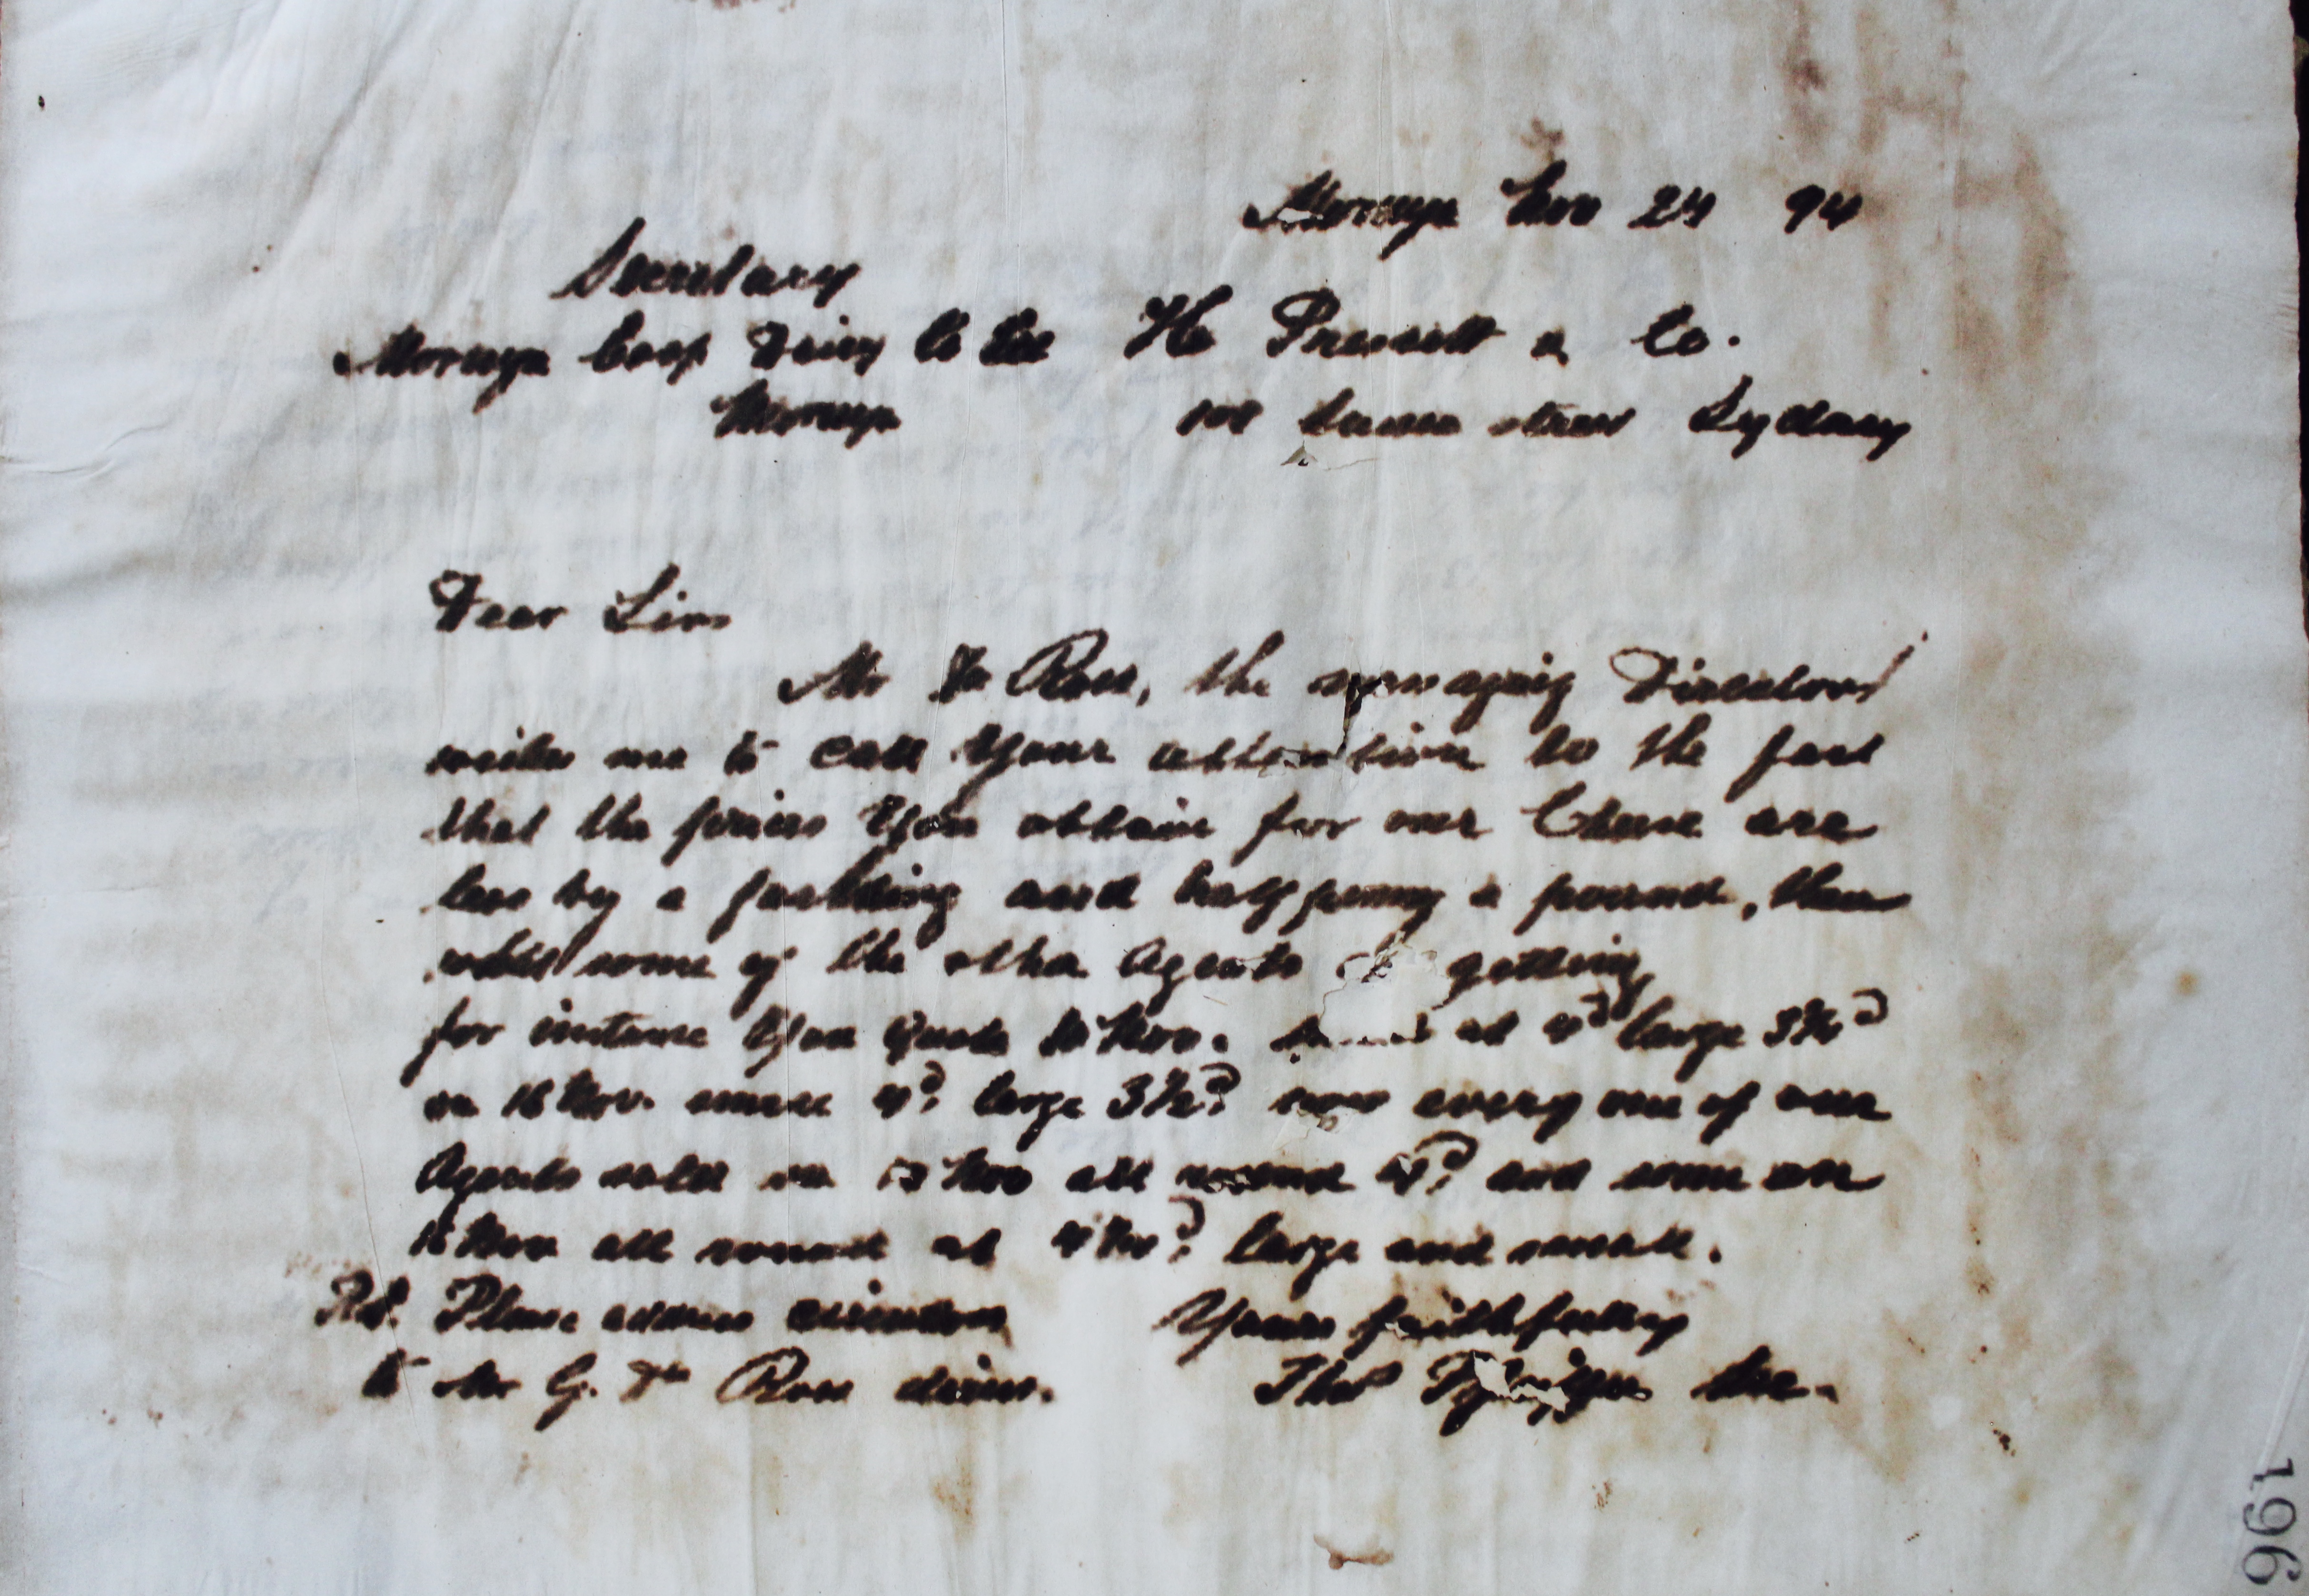 Moruya Nov 24 94
Secretary
Moruya Coop Dairy Co Ltd H. Prescott & Co.
Moruya Sussex street Sydney
Dear Sirs
Mr De Ross, the managing Director
writes me to call Your attention to the fact
that the prices You obtain for our Cheese are
less by a farthing and halfpenny a pound, than
what some of the other Agents getting
for instance You Quote Nov. at 4d large 3½d
on 16 Nov. small 4d. large 3½d. now every one of our
Agents sold on 13 Nov all round 4d. and some on
16 Nov all round at 4½d. large and small.
P.S. Please address Yours faithfully
to Mr G. De Ross Thos Sec.
196